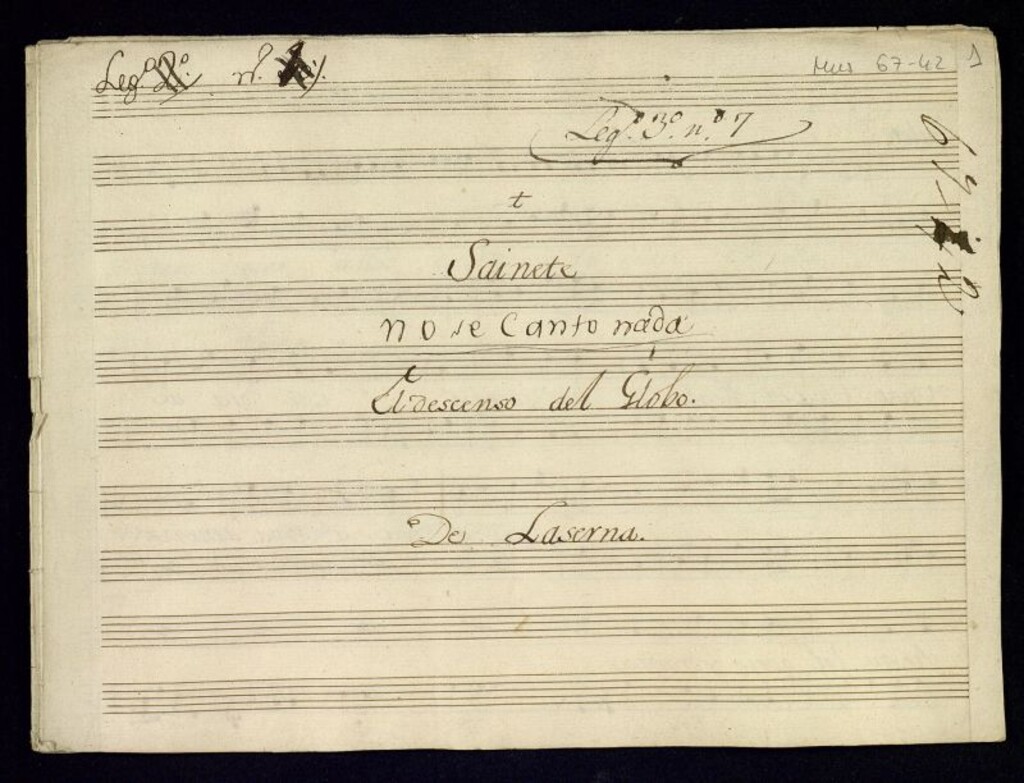 Leg.º 2.º n.º
Mus 67-42
1
Leg.º 3.º n.º 7
67-42
t
Sainete
no se Canto nada
El descenso del Globo.
De Laserna.